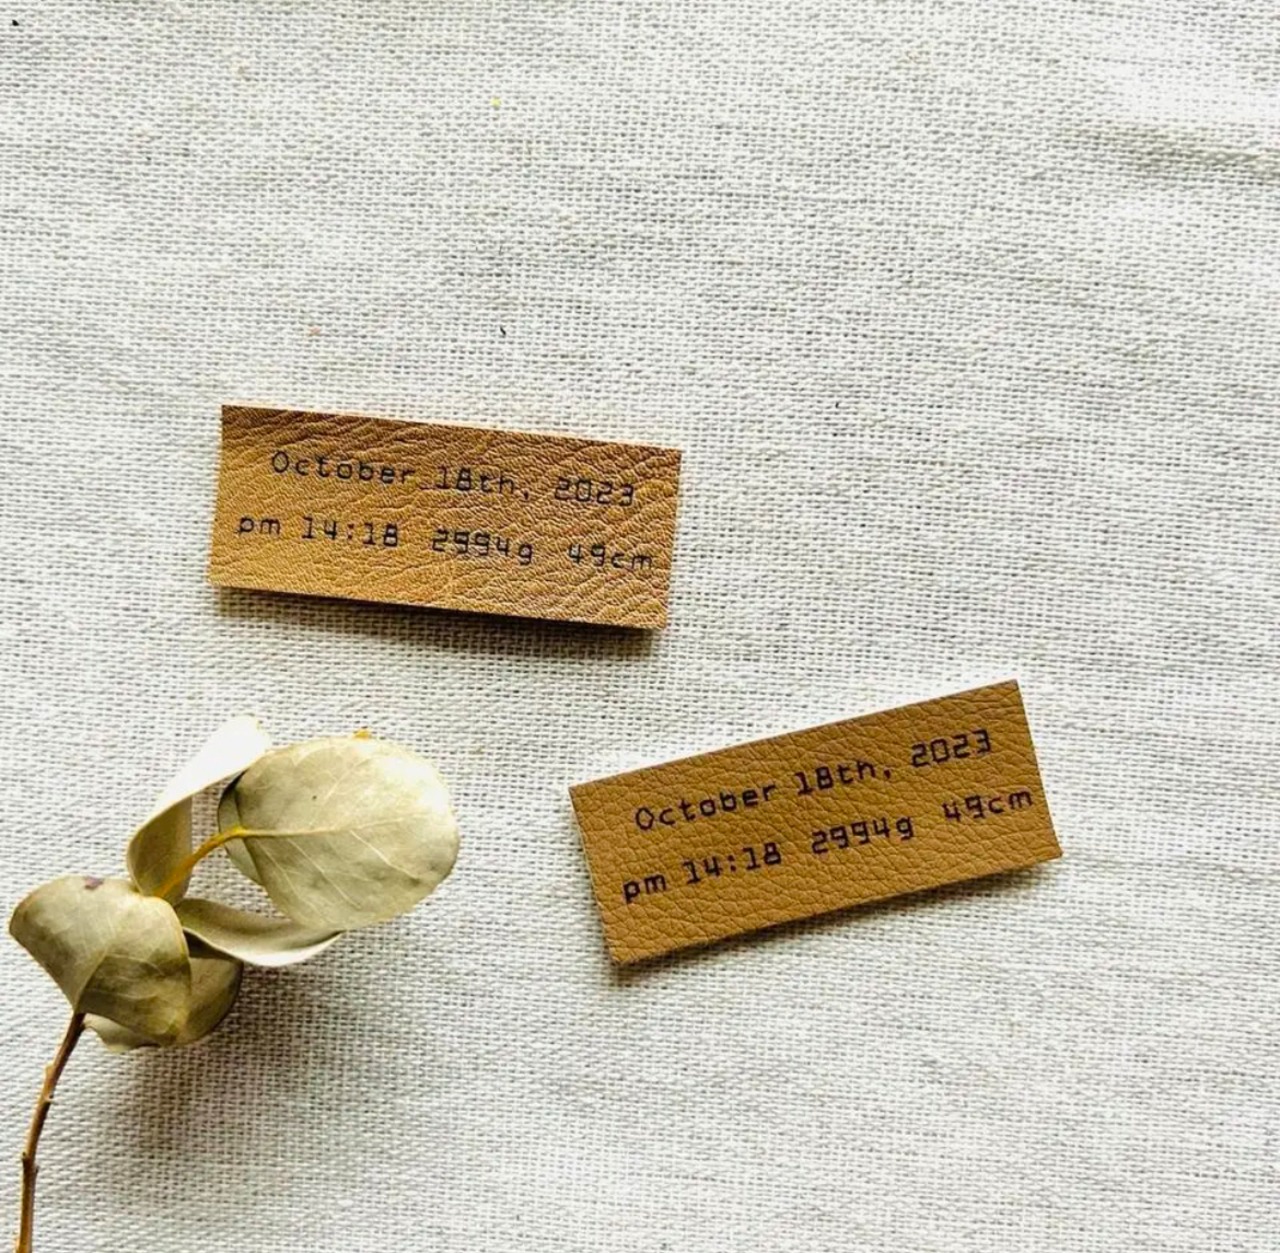 October 18th, 2023
pm 14:18 2994g 49cm
October 18th, 2023
pm 14:18 2994g 49cm